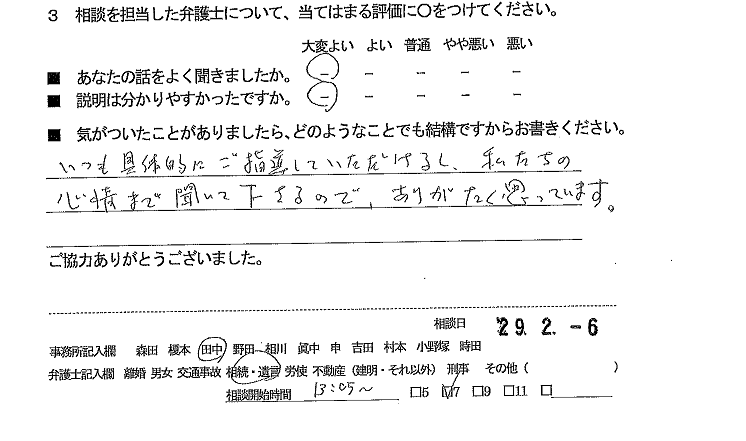 3 相談を担当した弁護士について、当てはまる評価に○をつけてください。
大変よい よい 普通 やや悪い 悪い
■ あなたの話をよく聞きましたか。 － － － － －
■ 説明は分かりやすかったですか。 － － － － －
■ 気がついたことがありましたら、どのようなことでも結構ですからお書きください。
いつも具体的にご指導していただけるし、私たちの
心情まで聞いて下さるので、ありがたく思っています。
ご協力ありがとうございました。
相談日 '29. 2. -6
事務所記入欄 森田 榎本 田中 野田 相川 眞中 申 吉田 村本 小野塚 時田
弁護士記入欄 離婚 男女 交通事故 相続・遺言 労使 不動産（建明・それ以外） 刑事 その他（ ）
相談開始時間 13:05～ □5 □7 □9 □11 □